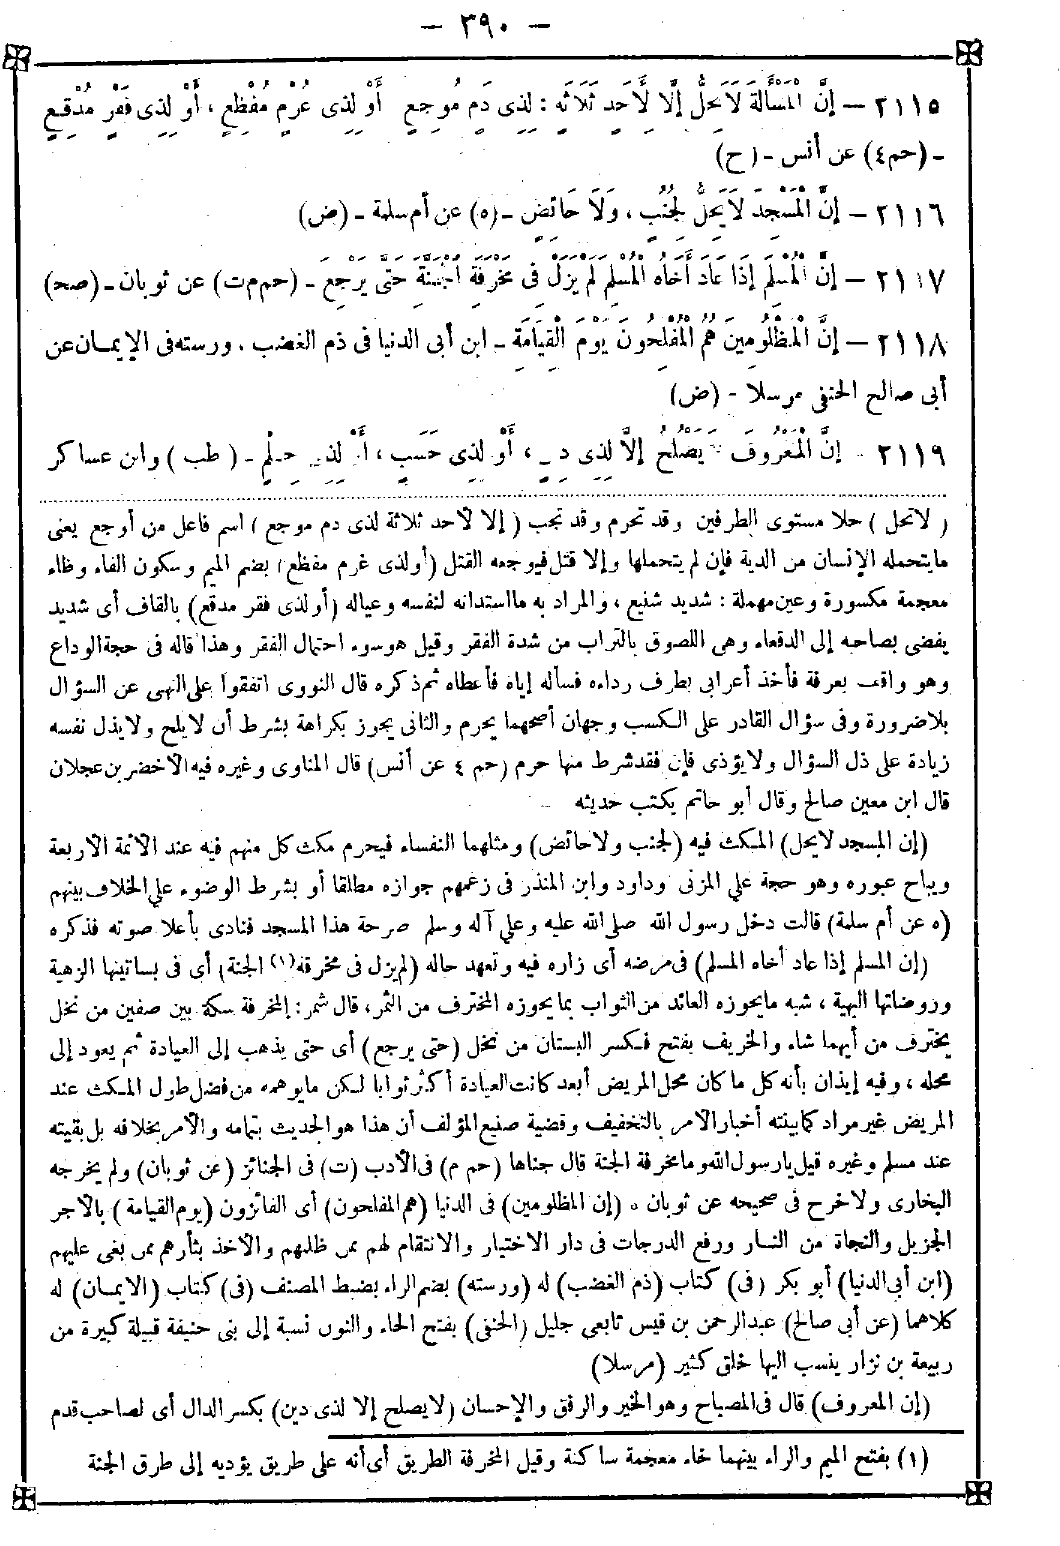 — ٣٩٠ —
٢١١٥ — إِنَّ الْمَسْأَلَةَ لَا تَحِلُّ إِلَّا لِأَحَدِ ثَلَاثَةٍ : لِذِى دَمٍ مُوجِعٍ أَوْ لِذِى غُرْمٍ مُفْظِعٍ ، أَوْ لِذِى فَقْرٍ مُدْقِعٍ
- (حم٤) عن أنس - (ح)
٢١١٦ — إِنَّ الْمَسْجِدَ لَا يَحِلُّ لِجُنُبٍ ، وَلَا حَائِضٍ - (ه) عن أم سلمة - (ض)
٢١١٧ — إِنَّ الْمُسْلِمَ إِذَا عَادَ أَخَاهُ الْمُسْلِمَ لَمْ يَزَلْ فِى مَخْرَفَةِ الْجَنَّةِ حَتَّى يَرْجِعَ - (حم م ت) عن ثوبان - (صح)
٢١١٨ — إِنَّ الْمَظْلُومِينَ هُمُ الْمُفْلِحُونَ يَوْمَ الْقِيَامَةِ - ابن أبى الدنيا فى ذم الغضب ، ورسته فى الإيمان عن
أبى صالح الحنفى مرسلا - (ض)
٢١١٩ - إِنَّ الْمَعْرُوفَ لَا يَصْلُحُ إِلَّا لِذِى دِينٍ ، أَوْ لِذِى حَسَبٍ ، أَوْ لِذِى حِلْمٍ - ( طب ) وابن عساكر
( لا تحل ) حلا مستوى الطرفين وقد تحرم وقد تجب ( إلا لأحد ثلاثة لذى دم موجع ) اسم فاعل من أوجع يعنى
ما يتحمله الإنسان من الدية فإن لم يتحملها وإلا قتل فيوجعه القتل (أو لذى غرم مفظع) بضم الميم وسكون الفاء وظاء
معجمة مكسورة وعين مهملة : شديد شنيع ، والمراد به ما استدانه لنفسه وعياله (أو لذى فقر مدقع) بالقاف أى شديد
يفضى بصاحبه إلى الدقعاء وهى اللصوق بالتراب من شدة الفقر وقيل هو سوء احتمال الفقر وهذا قاله فى حجة الوداع
وهو واقف بعرفة فأخذ أعرابى بطرف رداءه فسأله إياه فأعطاه ثم ذكره قال النووى اتفقوا على النهى عن السؤال
بلا ضرورة وفى سؤال القادر على الكسب وجهان أصحهما يحرم والثانى يجوز بكراهة بشرط أن لا يلح ولا يذل نفسه
زيادة على ذل السؤال ولا يؤذى فإن فقد شرط منها حرم (حم ٤ عن أنس) قال المناوى وغيره فيه الأخضر بن عجلان
قال ابن معين صالح وقال أبو حاتم يكتب حديثه
(إن المسجد لا يحل) المكث فيه (لجنب ولا حائض) ومثلهما النفساء فيحرم مكث كل منهم فيه عند الأئمة الأربعة
ويباح عبوره وهو حجة على المزنى وداود وابن المنذر فى زعمهم جوازه مطلقا أو بشرط الوضوء على الخلاف بينهم
(ه عن أم سلمة) قالت دخل رسول الله صلى الله عليه وعلى آله وسلم صرحة هذا المسجد فنادى بأعلا صوته فذكره
(إن المسلم إذا عاد أخاه المسلم) فى مرضه أى زاره فيه وتعهد حاله (لم يزل فى مخرفة(١) الجنة) أى فى بساتينها الزهية
وروضاتها البهية ، شبه ما يحوزه العائد من الثواب بما يحوزه المخترف من الثمر، قال شمر: المخرفة سكة بين صفين من نخل
يخترف من أيهما شاء والخريف بفتح فكسر البستان من نخل (حتى يرجع) أى حتى يذهب إلى العيادة ثم يعود إلى
محله ، وفيه إيذان بأنه كل ما كان محل المريض أبعد كانت العيادة أكثر ثوابا لكن ما يوهمه من فضل طول المكث عند
المريض غير مراد كما بينته أخبار الأمر بالتخفيف وقضية صنيع المؤلف أن هذا هو الحديث بتمامه والأمر بخلافه بل بقيته
عند مسلم وغيره قيل يا رسول الله وما مخرفة الجنة قال جناها (حم م) فى الأدب (ت) فى الجنائز (عن ثوبان) ولم يخرجه
البخارى ولا خرج فى صحيحه عن ثوبان ه (إن المظلومين) فى الدنيا (هم المفلحون) أى الفائزون (يوم القيامة ) بالأجر
الجزيل والنجاة من النار ورفع الدرجات فى دار الاختيار والانتقام لهم ممن ظلمهم والأخذ بثأرهم ممن بغى عليهم
(ابن أبى الدنيا) أبو بكر (فى) كتاب (ذم الغضب) له (ورسته) بضم الراء بضبط المصنف (فى) كتاب (الإيمان) له
كلاهما (عن أبى صالح) عبد الرحمن بن قيس تابعى جليل (الحنفى) بفتح الحاء والنون نسبة إلى بنى حنيفة قبيلة كبيرة من
ربيعة بن نزار ينسب اليها خلق كثير (مرسلا)
(إن المعروف) قال فى المصباح وهو الخير والرفق والإحسان (لا يصلح إلا لذى دين) بكسر الدال أى لصاحب قدم
(١) بفتح الميم والراء بينهما خاء معجمة ساكنة وقيل المخرفة الطريق أى أنه على طريق يؤديه إلى طرق الجنة